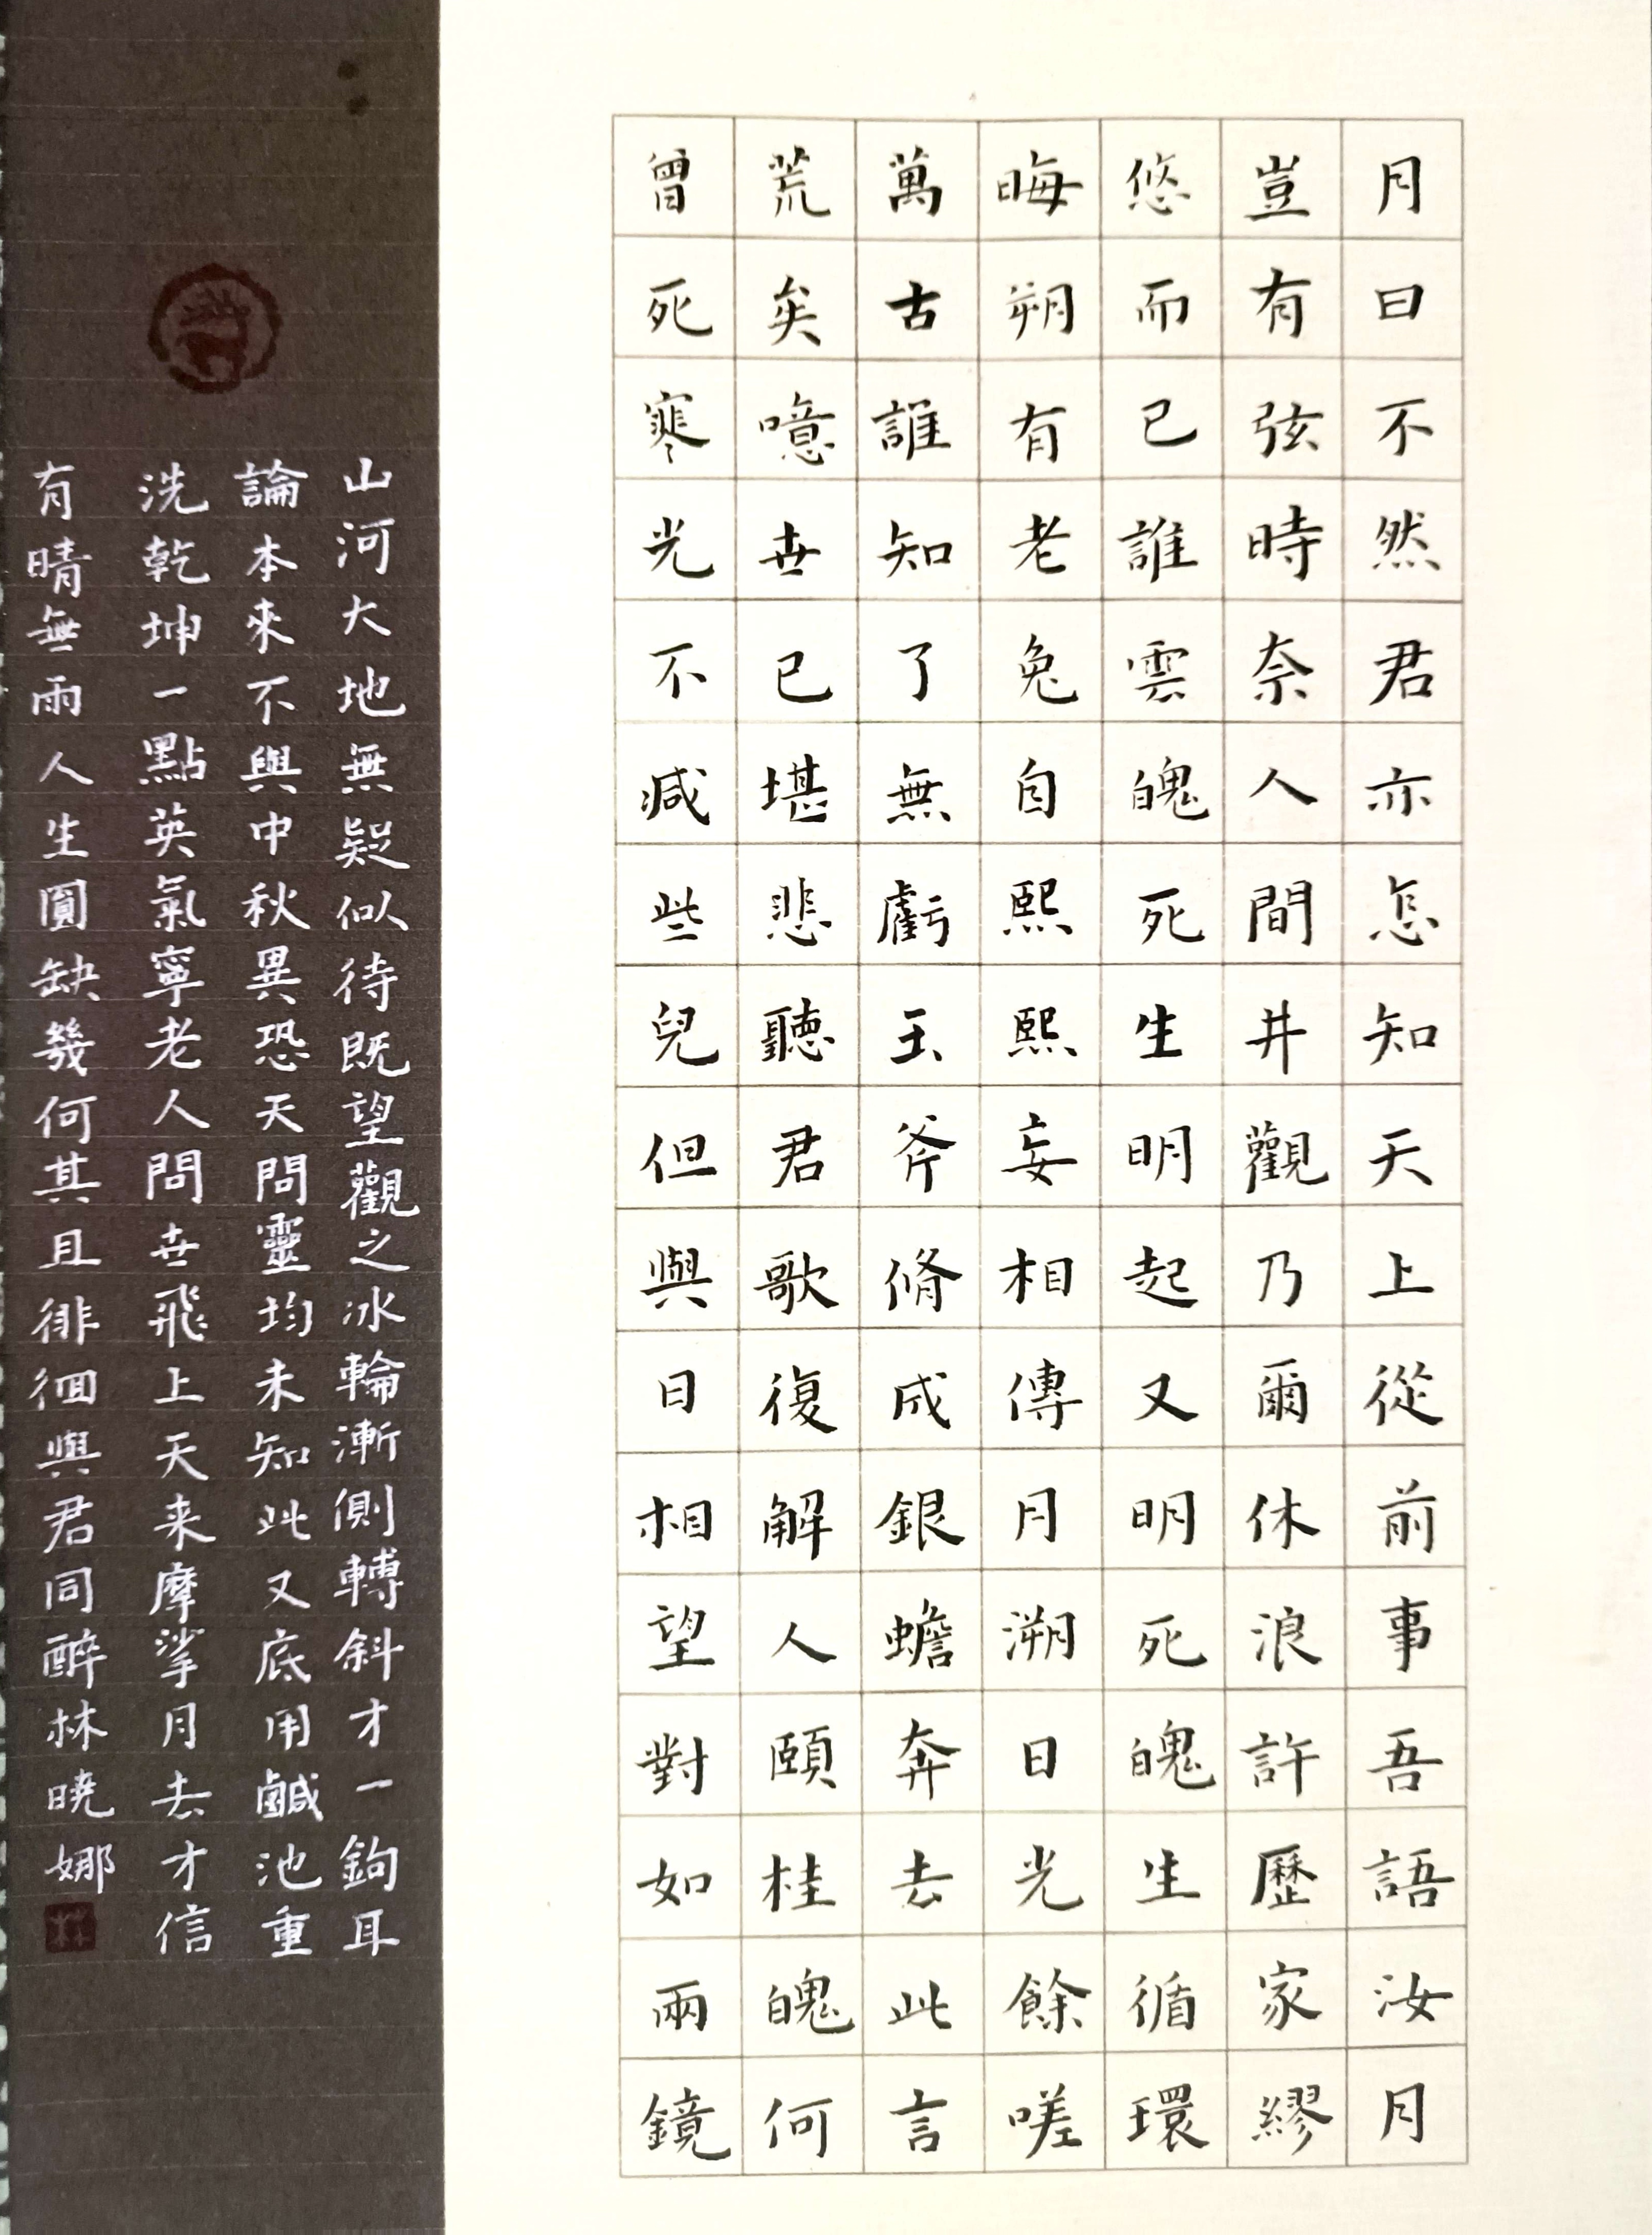 月曰不然君亦怎知天上從前事吾語汝月
豈有弦時奈人間井觀乃爾休浪許歷家繆
悠而已誰雲魄死生明起又明死魄生循環
晦朔有老兔自熙熙妄相傳月溯日光餘嗟
萬古誰知了無虧玉斧脩成銀蟾奔去此言
荒矣噫世已堪悲聽君歌復解人頤桂魄何
曾死寒光不减些兒但與日相望對如兩鏡
山河大地無疑似待既望觀之冰輪漸側轉斜才一鉤耳
論本來不與中秋異恐天問靈均未知此又底用鹹池重
洗乾坤一點英氣寧老人間世飛上天来摩挲月去才信
有晴無雨人生圓缺幾何其且徘徊與君同醉林曉娜
林